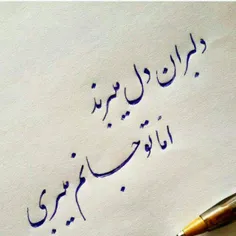 دلبران دل میبرند
امّا تو جانم میبری